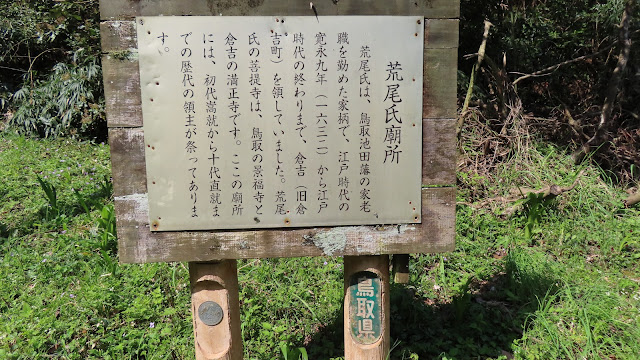 荒尾氏廟所
荒尾氏は、鳥取池田藩の家老
職を勤めた家柄で、江戸時代の
寛永九年（一六三二）から江戸
時代の終わりまで、倉吉（旧倉
吉町）を領していました。荒尾
氏の菩提寺は、鳥取の景福寺と
倉吉の満正寺です。ここの廟所
には、初代嵩就から十代直就ま
での歴代の領主が祭ってありま
す。
鳥取県